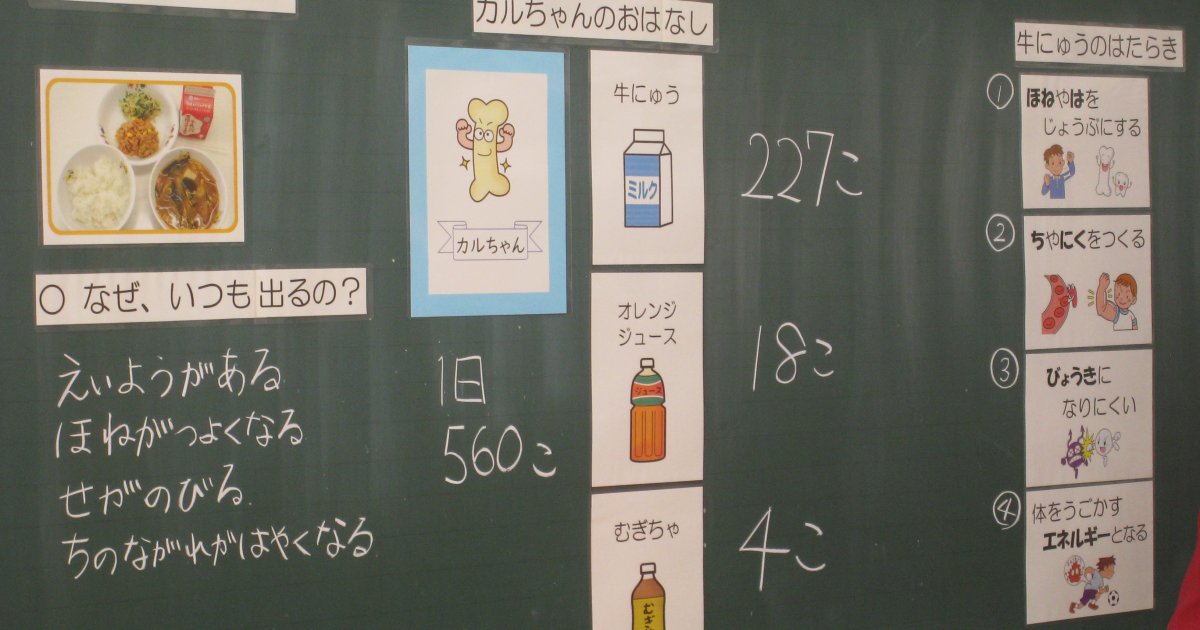 ○ なぜ、いつも出るの？
えいようがある
ほねがつよくなる
せがのびる
ちのながれがはやくなる
カルちゃんのおはなし
カルちゃん
1日
560こ
牛にゅう
ミルク
227こ
オレンジ
ジュース
ジュース
18こ
むぎちゃ
むぎ
4こ
牛にゅうのはたらき
①
ほねやはを
じょうぶにする
②
ちやにくをつくる
③
びょうきに
なりにくい
④
体をうごかす
エネルギーとなる